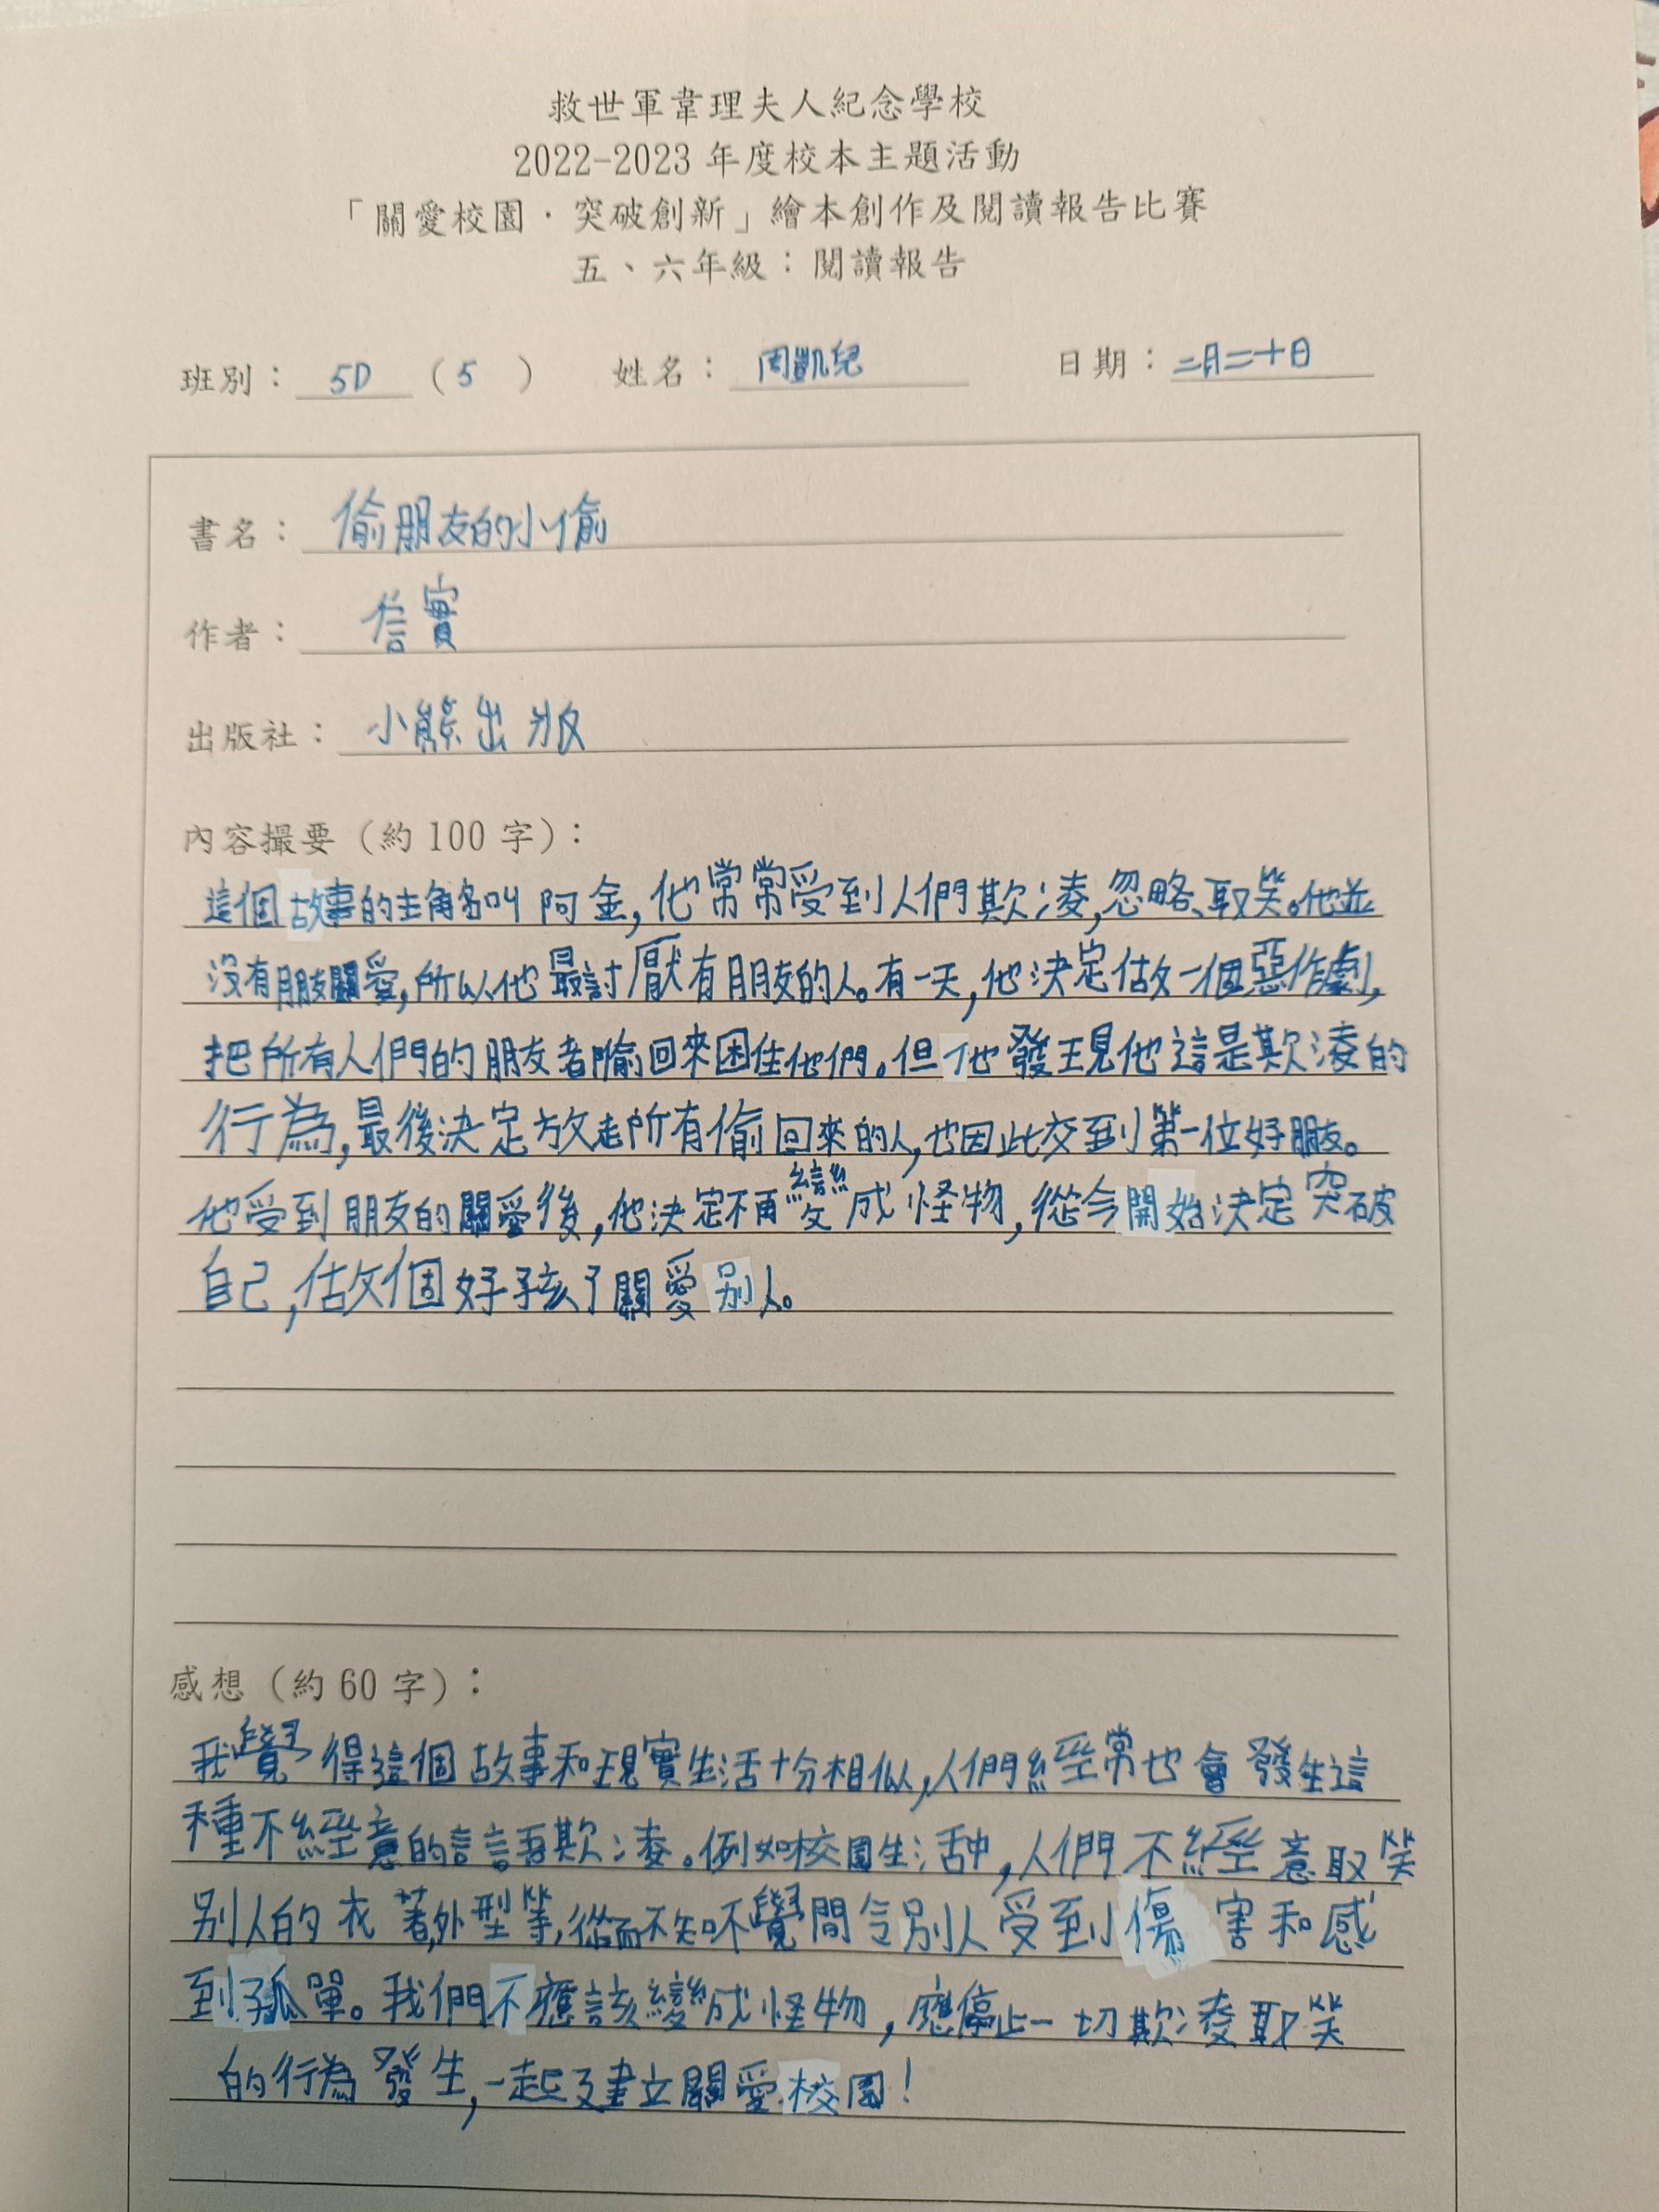 救世軍韋理夫人紀念學校
2022-2023 年度校本主題活動
「關愛校園．突破創新」繪本創作及閱讀報告比賽
五、六年級：閱讀報告
班別： 5D （5 ） 姓名： 周凱兒 日期：二月二十日
書名： 偷朋友的小偷
作者： 信實
出版社： 小熊出版
內容撮要（約 100 字）：
這個故事的主角名叫阿金，他常常受到人們欺凌，忽略、取笑。他並
沒有朋友關愛，所以他最討厭有朋友的人。有一天，他決定做一個惡作劇，
把所有人們的朋友者偷回來困住他們。但他發現他這是欺凌的
行為，最後決定放走所有偷回來的人，也因此交到第一位好朋友。
他受到朋友的關愛後，他決定不再變成怪物，從今開始決定突破
自己，做個好孩子關愛別人。
感想（約 60 字）：
我覺得這個故事和現實生活十分相似，人們經常也會發生這
種不經意的言語欺凌。例如校園生活中，人們不經意取笑
別人的衣著、外型等，從而不知不覺間令別人受到傷害和感
到孤單。我們不應該變成怪物，應停止一切欺凌取笑
的行為發生，一起建立關愛校園！